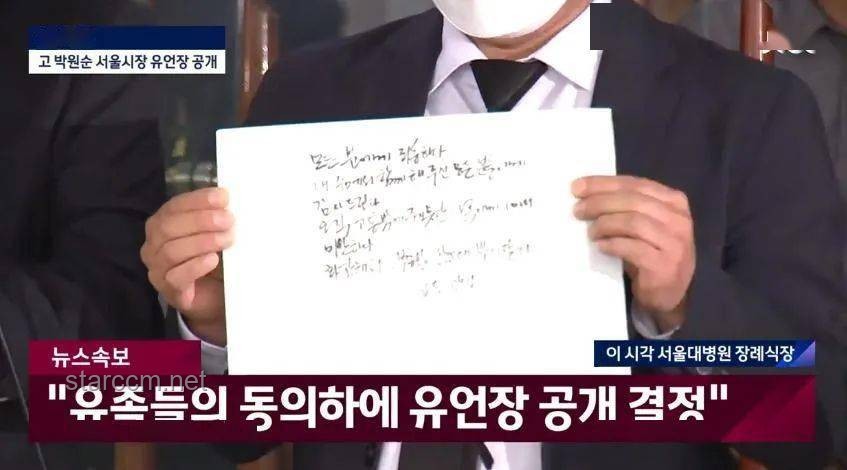 고 박원순 서울시장 유언장 공개
모든 분에게 죄송하다
내 삶에서 함께 해주신 모든 분에게
감사드린다
오직, 고통밖에 주지 못한 가족에게 내내
미안하다
화장해서 부모님 산소에 뿌려달라
모두 안녕
뉴스속보
이 시각 서울대병원 장례식장
starccm.net
"유족들의 동의하에 유언장 공개 결정"